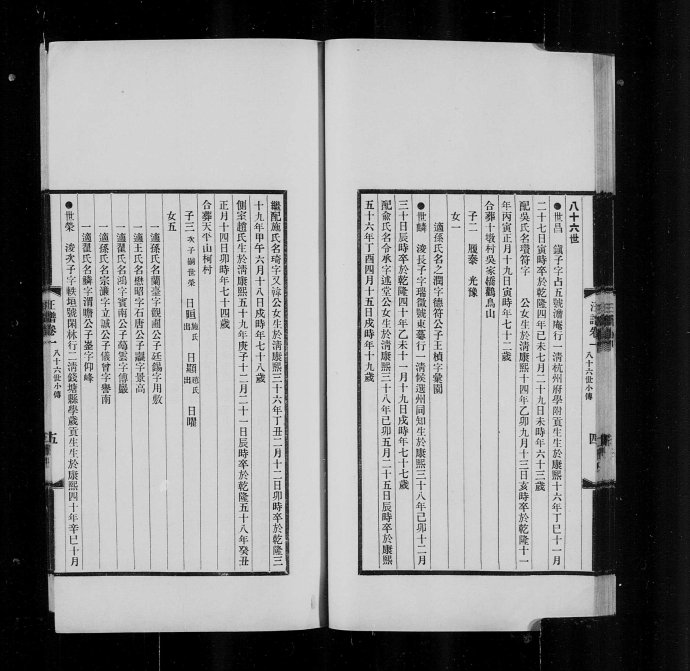 八十六世
●世昌 鐵子字占五號澹庵行一清杭州府學附貢生生於康熙十六年丁巳十一月
二十七日寅時卒於乾隆四年己未七月二十九日未時年六十三歲
配吳氏名瓊符字 公女生於清康熙十四年乙卯九月十三日亥時卒於乾隆十一
年丙寅正月十九日寅時年七十二歲
合葬十墩村吳家橋鸛鳥山
子二 履泰 光豫
女一
適孫氏名之潤字德符公子王槙字彙園
●世麟 淩長子字瑞徵號東蓁行一清候選州同知生於康熙三十八年己卯十二月
三十日辰時卒於乾隆四十年乙未十一月十九日戌時年七十七歲
配俞氏名令承字述堂公女生於清康熙三十八年己卯五月二十五日辰時卒於康熙
五十六年丁酉四月十五日戌時年十九歲
汪譜卷一 八十六世小傳 四
繼配施氏名琦字又韓公女生於清康熙三十六年丁丑二月十二日卯時卒於乾隆三
十九年甲午六月十八日戌時年七十八歲
側室趙氏生於清康熙五十九年庚子十二月二十一日辰時卒於乾隆五十八年癸丑
正月十四日卯時年七十四歲
合葬天平山柯村
子三 次子嗣世榮 日暄 施氏出 日顯 趙氏出 日曜
女五
一適孫氏名蘭臺字觀澗公子廷錫字用敷
一適王氏名懋昭字石唐公子讓字景高
一適翟氏名鴻字賓南公子葛雲字傅巖
一適孫氏名宗濂字立誠公子儀曾字譽南
一適翟氏名麟字渭瞻公子崟字仰峰
●世榮 淩次子字軼垣號閑林行二清錢塘縣學歲貢生生於康熙四十年辛巳十月
汪譜卷一 八十六世小傳 五